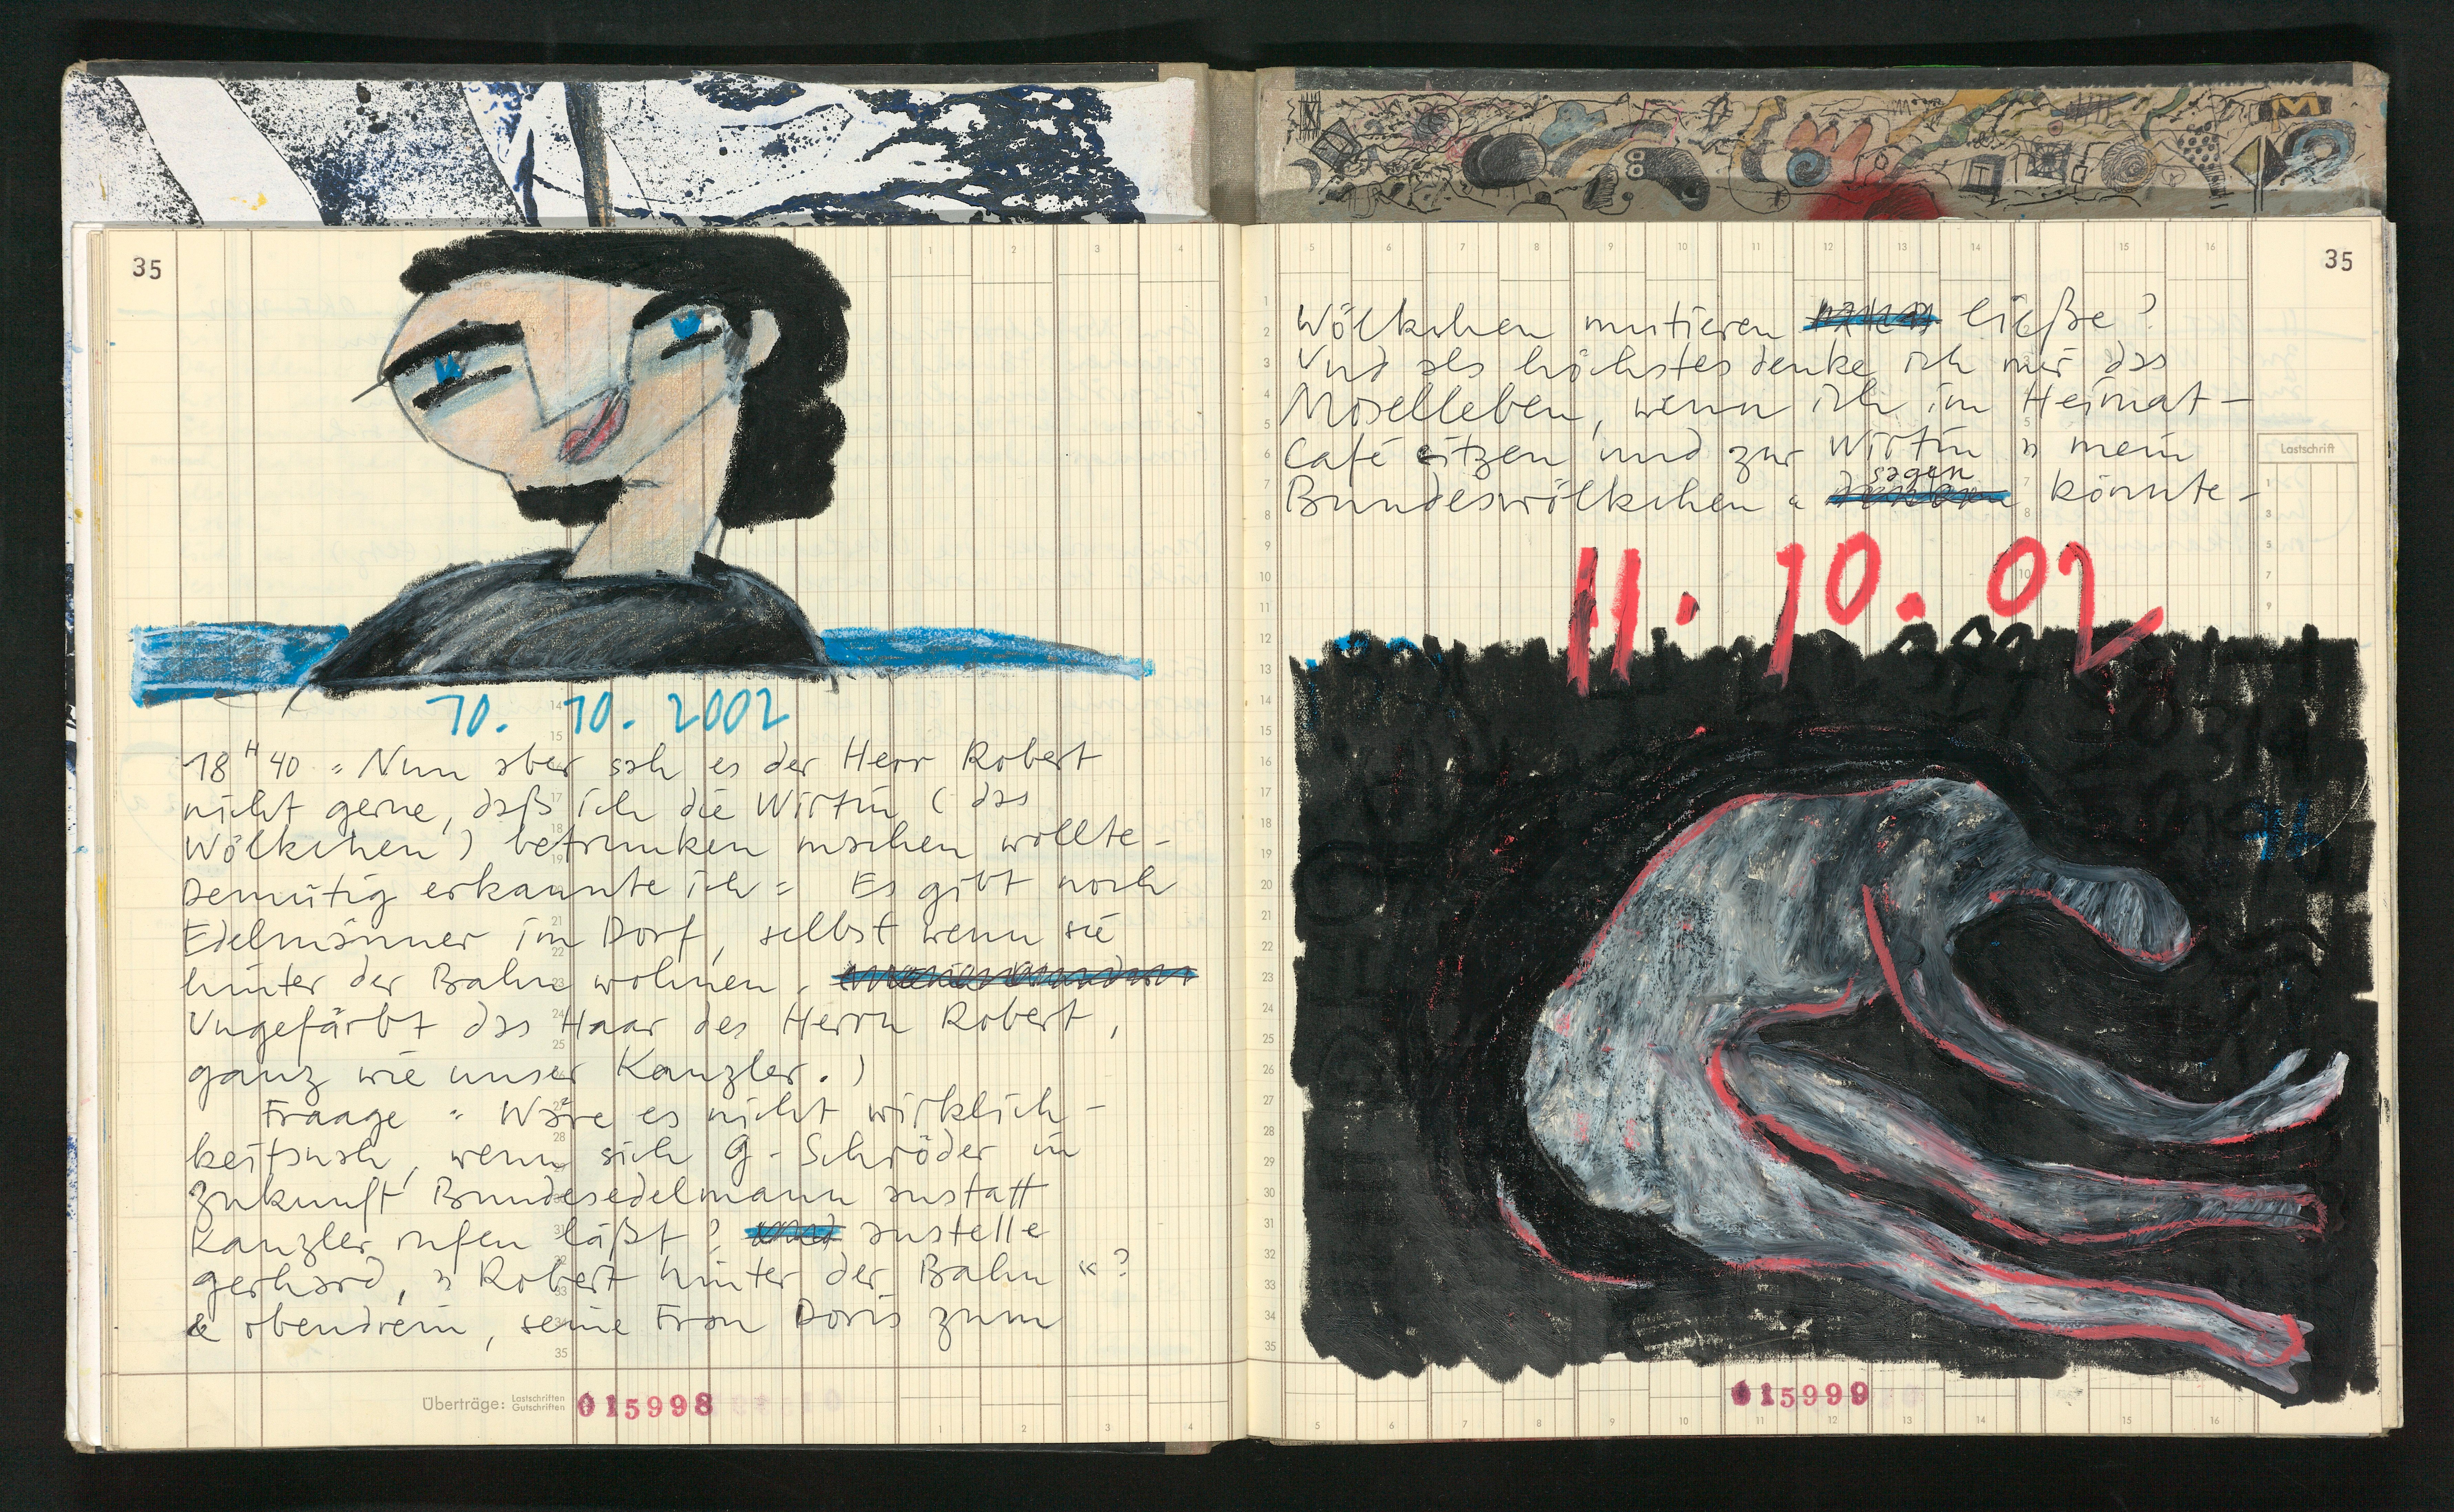 35
1 2 3 4
10. 10. 2002
18 H 40 = Nun aber sah es der Herr Robert
nicht gerne, daß ich die Wirtin ( das
Wölkchen ) betrunken machen wollte -
Demütig erkannte ich = Es gibt noch
Edelmänner im Dorf, selbst wenn sie
hinter der Bahn wohnen.
Ungefärbt das Haar des Herrn Robert,
ganz wie unser Kanzler. )
Fraage = Wäre es nicht wirklich-
keitsnah, wenn sich G. Schröder in
Zukunft Bundesedelmann anstatt
Kanzler rufen läßt? anstelle
Gerhard, » Robert hinter der Bahn «?
& obendrein, seine Frau Doris zum
Überträge: Lastschriften
Gutschriften
015998
1 2 3 4
35
5 6 7 8 9 10 11 12 13 14 15 16
Wölkchen mutieren ließe?
Und als höchstes denke ich mir das
Moselleben, wenn ich im Heimat-
Café sitzen und zur Wirtin » mein
Bundeswölkchen « sagen könnte -
Lastschrift
11. 10. 02
015999
5 6 7 8 9 10 11 12 13 14 15 16